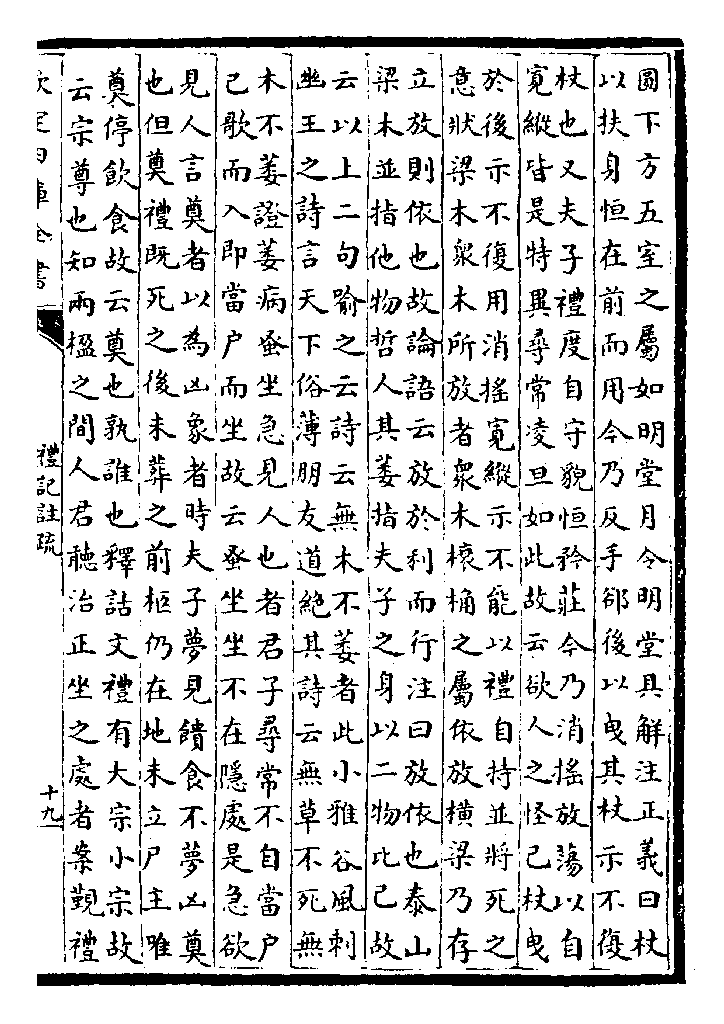 圓下方五室之屬如明堂月令明堂具解注正義曰杖
以扶身恒在前而用今乃反手郤後以曳其杖示不復
杖也又夫子禮度自守貌恒矜莊今乃消搖放蕩以自
寛縱皆是特異尋常凌旦如此故云欲人之怪己杖曳
於後示不復用消搖寛縱示不能以禮自持並將死之
意狀梁木衆木所放者衆木榱桷之屬依放橫梁乃存
立放則依也故論語云放於利而行注曰放依也泰山
梁木並指他物哲人其萎指夫子之身以二物比己故
云以上二句喻之云詩云無木不萎者此小雅谷風刺
幽王之詩言天下俗薄朋友道絶其詩云無草不死無
木不萎證萎病蚤坐急見人也者君子尋常不自當户
己歌而入即當户而坐故云蚤坐坐不在隱處是急欲
見人言奠者以為凶象者時夫子夢見饋食不夢凶奠
也但奠禮既死之後未葬之前柩仍在地未立尸主唯
奠停飲食故云奠也孰誰也釋詁文禮有大宗小宗故
云宗尊也知兩楹之間人君聽治正坐之處者案覲禮
欽定四庫全書
禮記註疏
十九